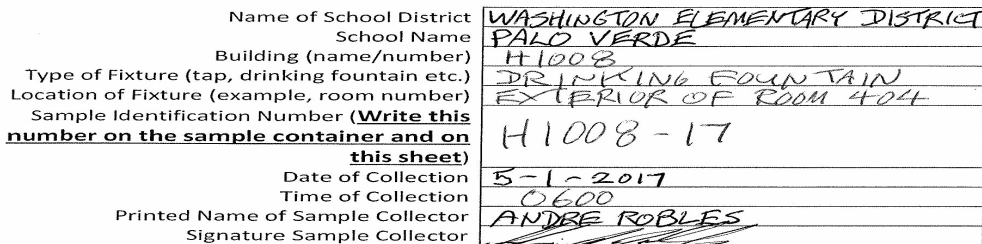 Name of School District WASHINGTON ELEMENTARY DISTRICT
School Name PALO VERDE
Building (name/number) H1008
Type of Fixture (tap, drinking fountain etc.) DRINKING FOUNTAIN
Location of Fixture (example, room number) EXTERIOR OF ROOM 404
Sample Identification Number (Write this
number on the sample container and on H1008-17
this sheet)
Date of Collection 5-1-2017
Time of Collection 0600
Printed Name of Sample Collector ANDRE ROBLES
Signature Sample Collector